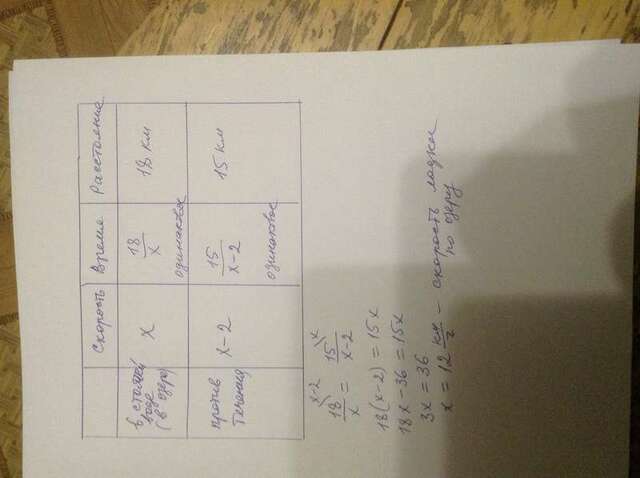 Скорость Время Расстояние
в стоячей воде (в озере) x 18/x одинаковое 18 км
против течения x-2 15/x-2 одинаковое 15 км
x-2 x
18/x = 15/x-2
18(x-2) = 15x
18x-36 = 15x
3x = 36
x = 12 км/ч - скорость лодки
по озеру